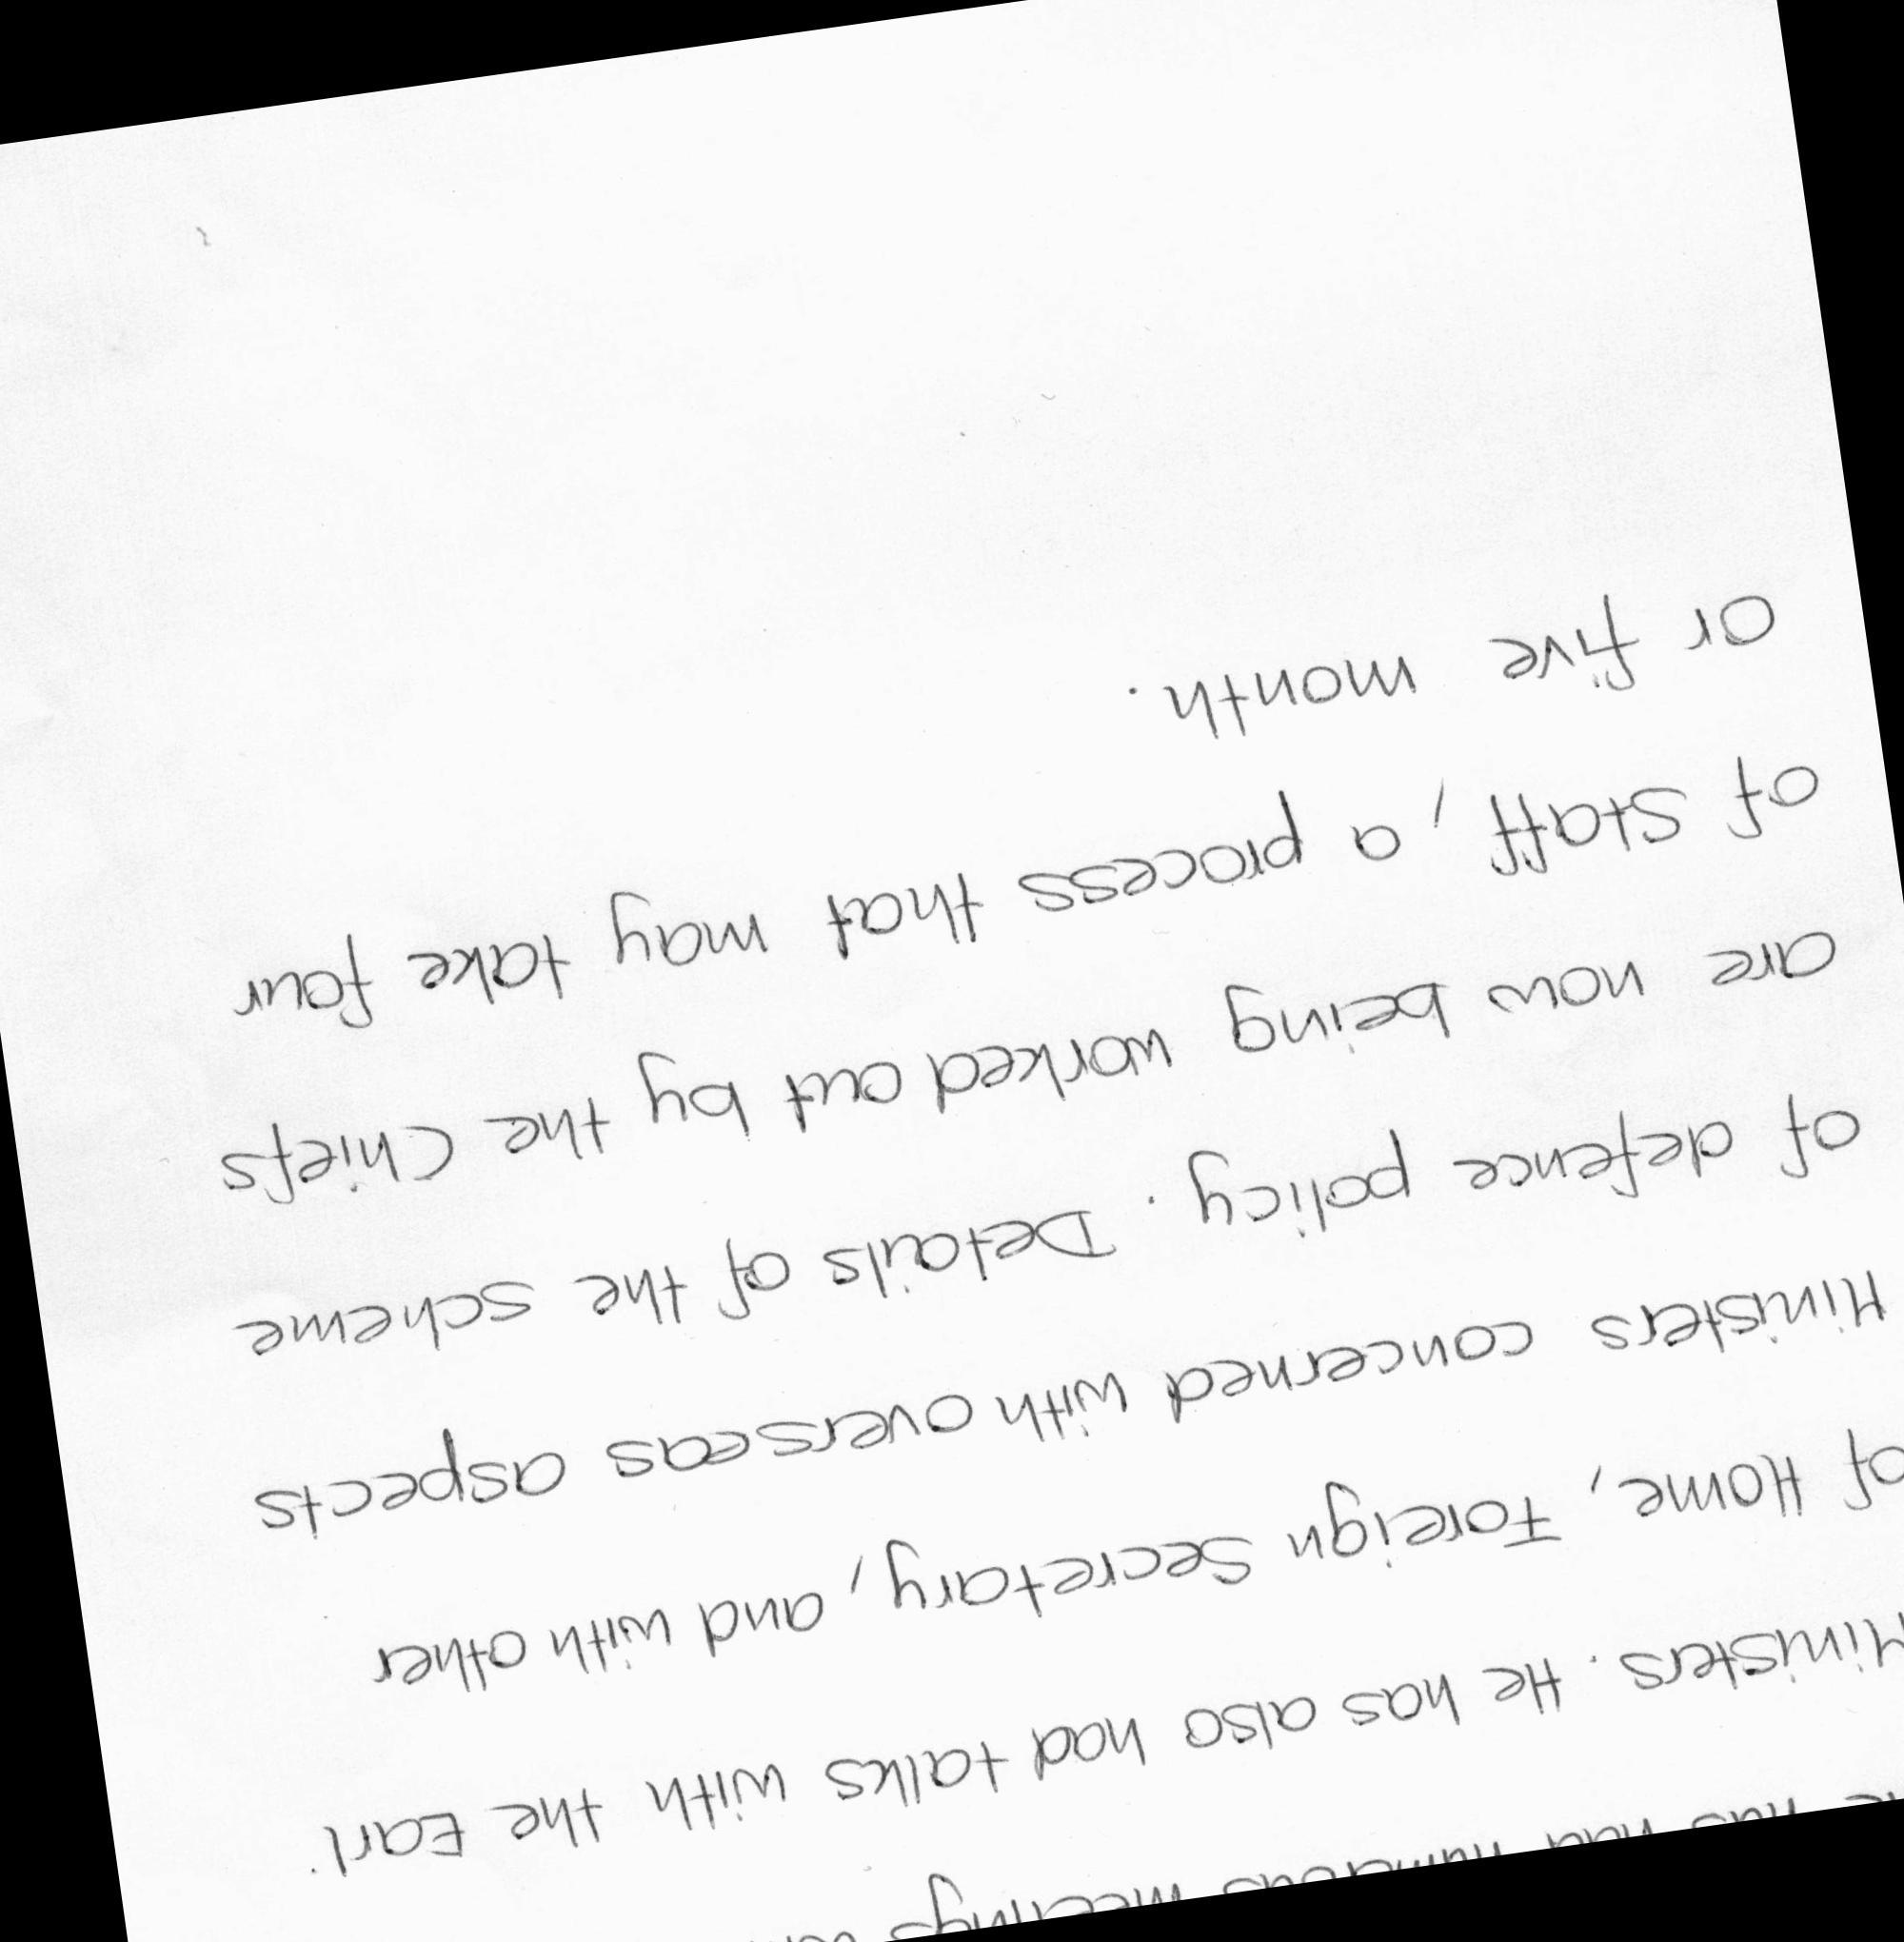 has had numerous meetings
Ministers. He has also had talks with the Earl.
of Home, Foreign Secretary, and with other
Ministers concerned with overseas aspects
of defence policy. Details of the scheme
are now being worked out by the Chiefs
of Staff, a process that may take four
or five month.